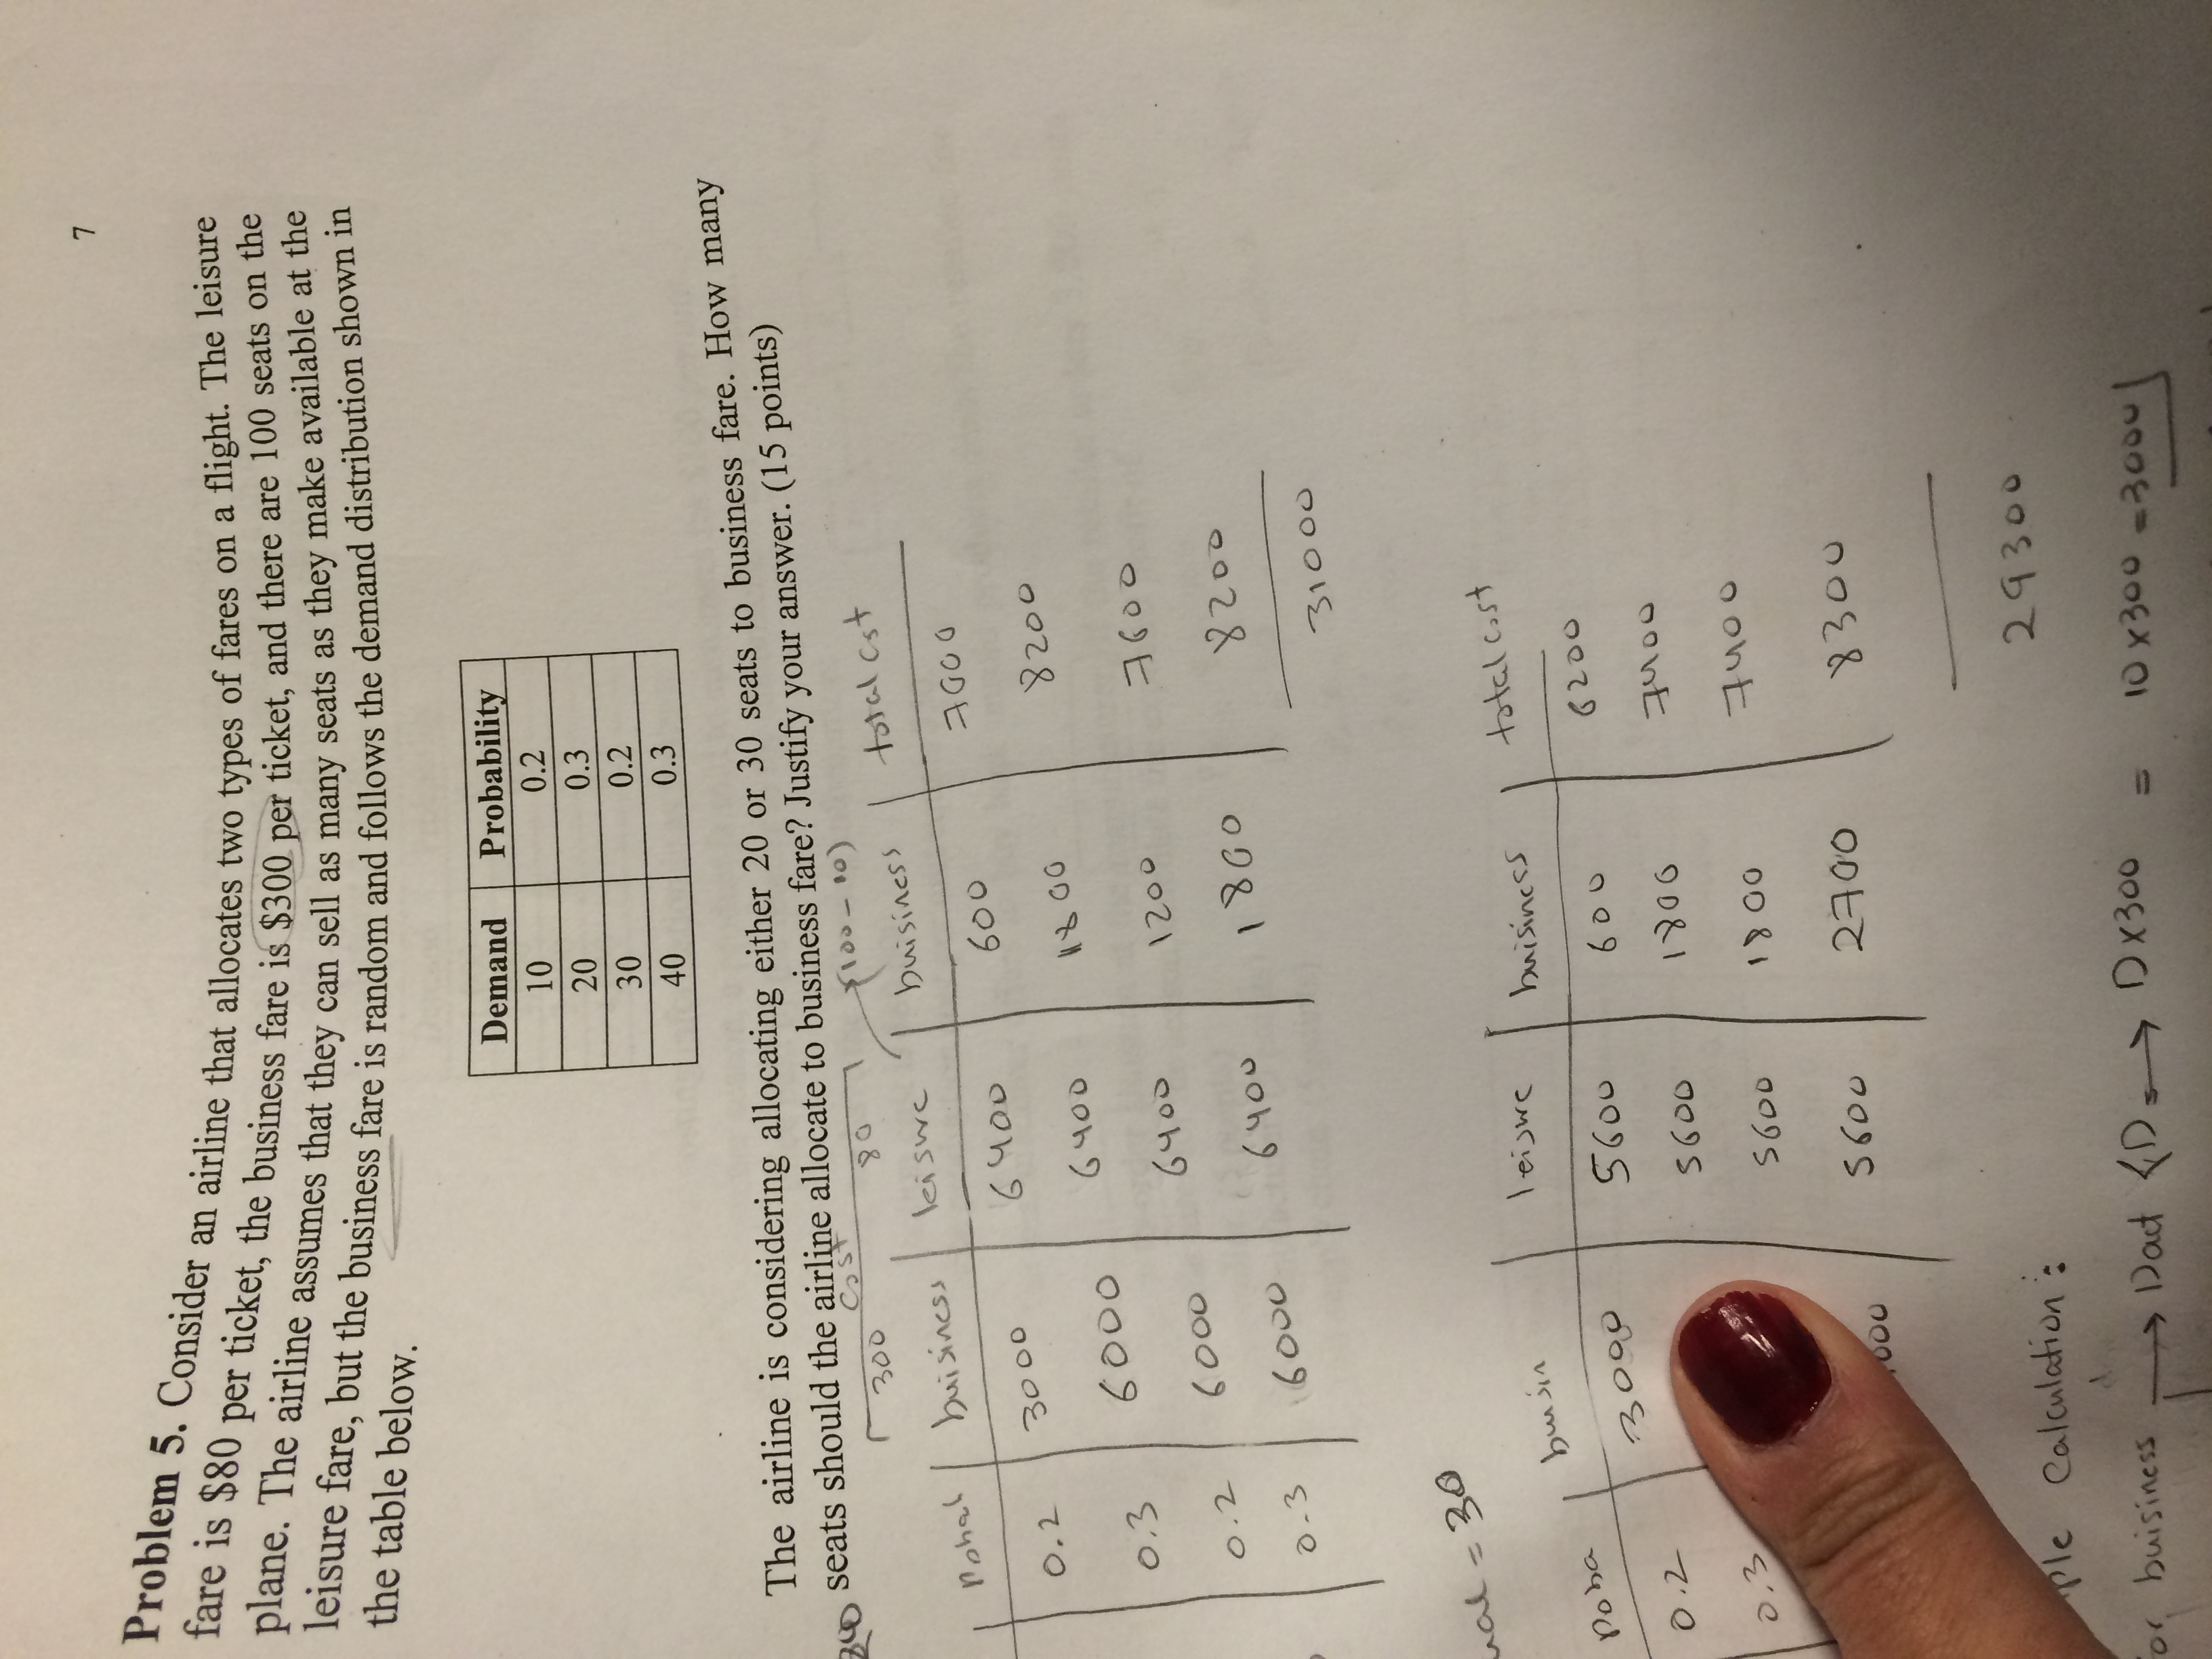 7
Problem 5. Consider an airline that allocates two types of fares on a flight. The leisure
fare is $80 per ticket, the business fare is $300 per ticket, and there are 100 seats on the
plane. The airline assumes that they can sell as many seats as they make available at the
leisure fare, but the business fare is random and follows the demand distribution shown in
the table below.
Demand Probability
10 0.2
20 0.3
30 0.2
40 0.3
The airline is considering allocating either 20 or 30 seats to business fare. How many
seats should the airline allocate to business fare? Justify your answer. (15 points)
cost
300 80 (100-10)
buisiness leisure buisiness total cost
0.2 3000 6400 600 7000
0.3 6000 6400 1800 8200
0.2 6000 6400 1200 7600
0.3 6000 6400 1800 8200
31000
= 30
Poba buisin leisure buisiness total cost
0.2 3000 5600 600 6200
0.3 5600 1800 7400
5600 1800 7400
000 5600 2700 8300
29300
ple Calculation:
or buisiness → Dact <D → D×300 = 10×300 = 3000